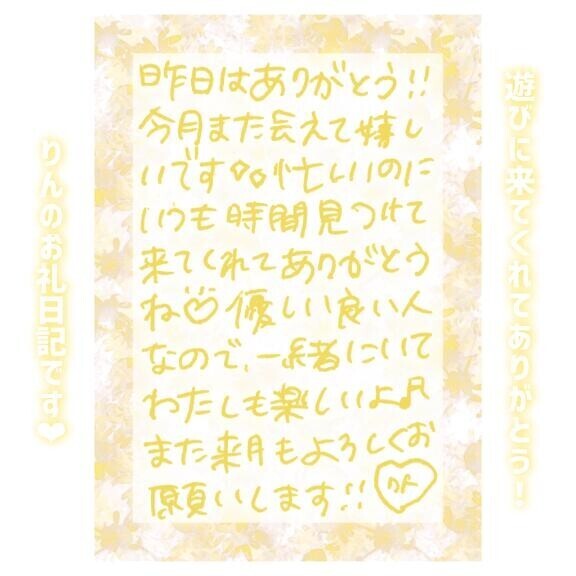 遊びに来てくれてありがとう!
昨日はありがとう!!
今月また会えて嬉し
いです 忙しいのに
いつも時間見つけて
来てくれてありがとう
ね♡優しい良い人
なので、一緒にいて
わたしも楽しいよ♪
また来月もよろしくお
願いします!!
りんのお礼日記です❤